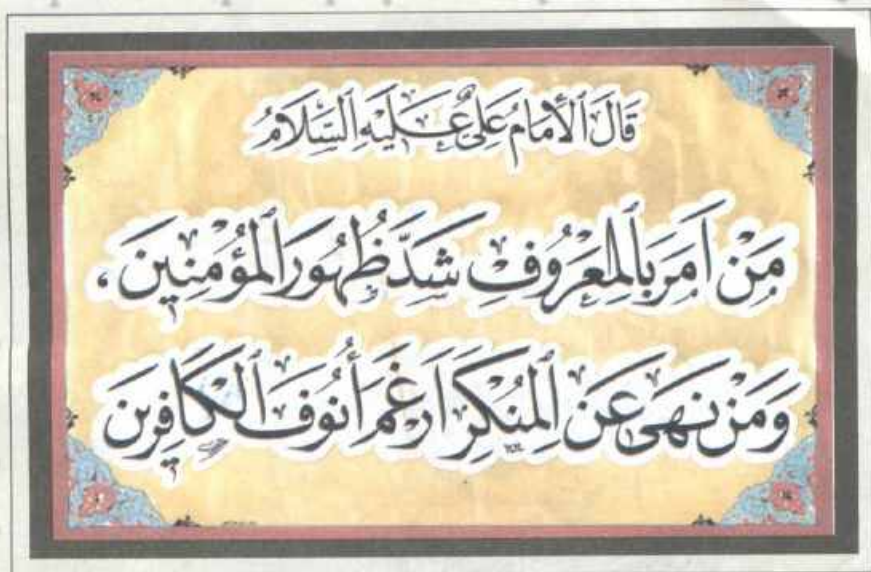 قَالَ ٱلْأمَامُ عَلِيٌّ عَلَيْهِ ٱلسَّلَامُ
مَنْ اَمَرَ بِٱلْمَعْرُوفِ شَدَّ ظُهُورَ ٱلْمُؤْمِنِينَ،
وَمَنْ نَهَىٰ عَنِ ٱلْمُنْكَرِ اَرْغَمَ أُنُوفَ ٱلْكَافِرِينَ